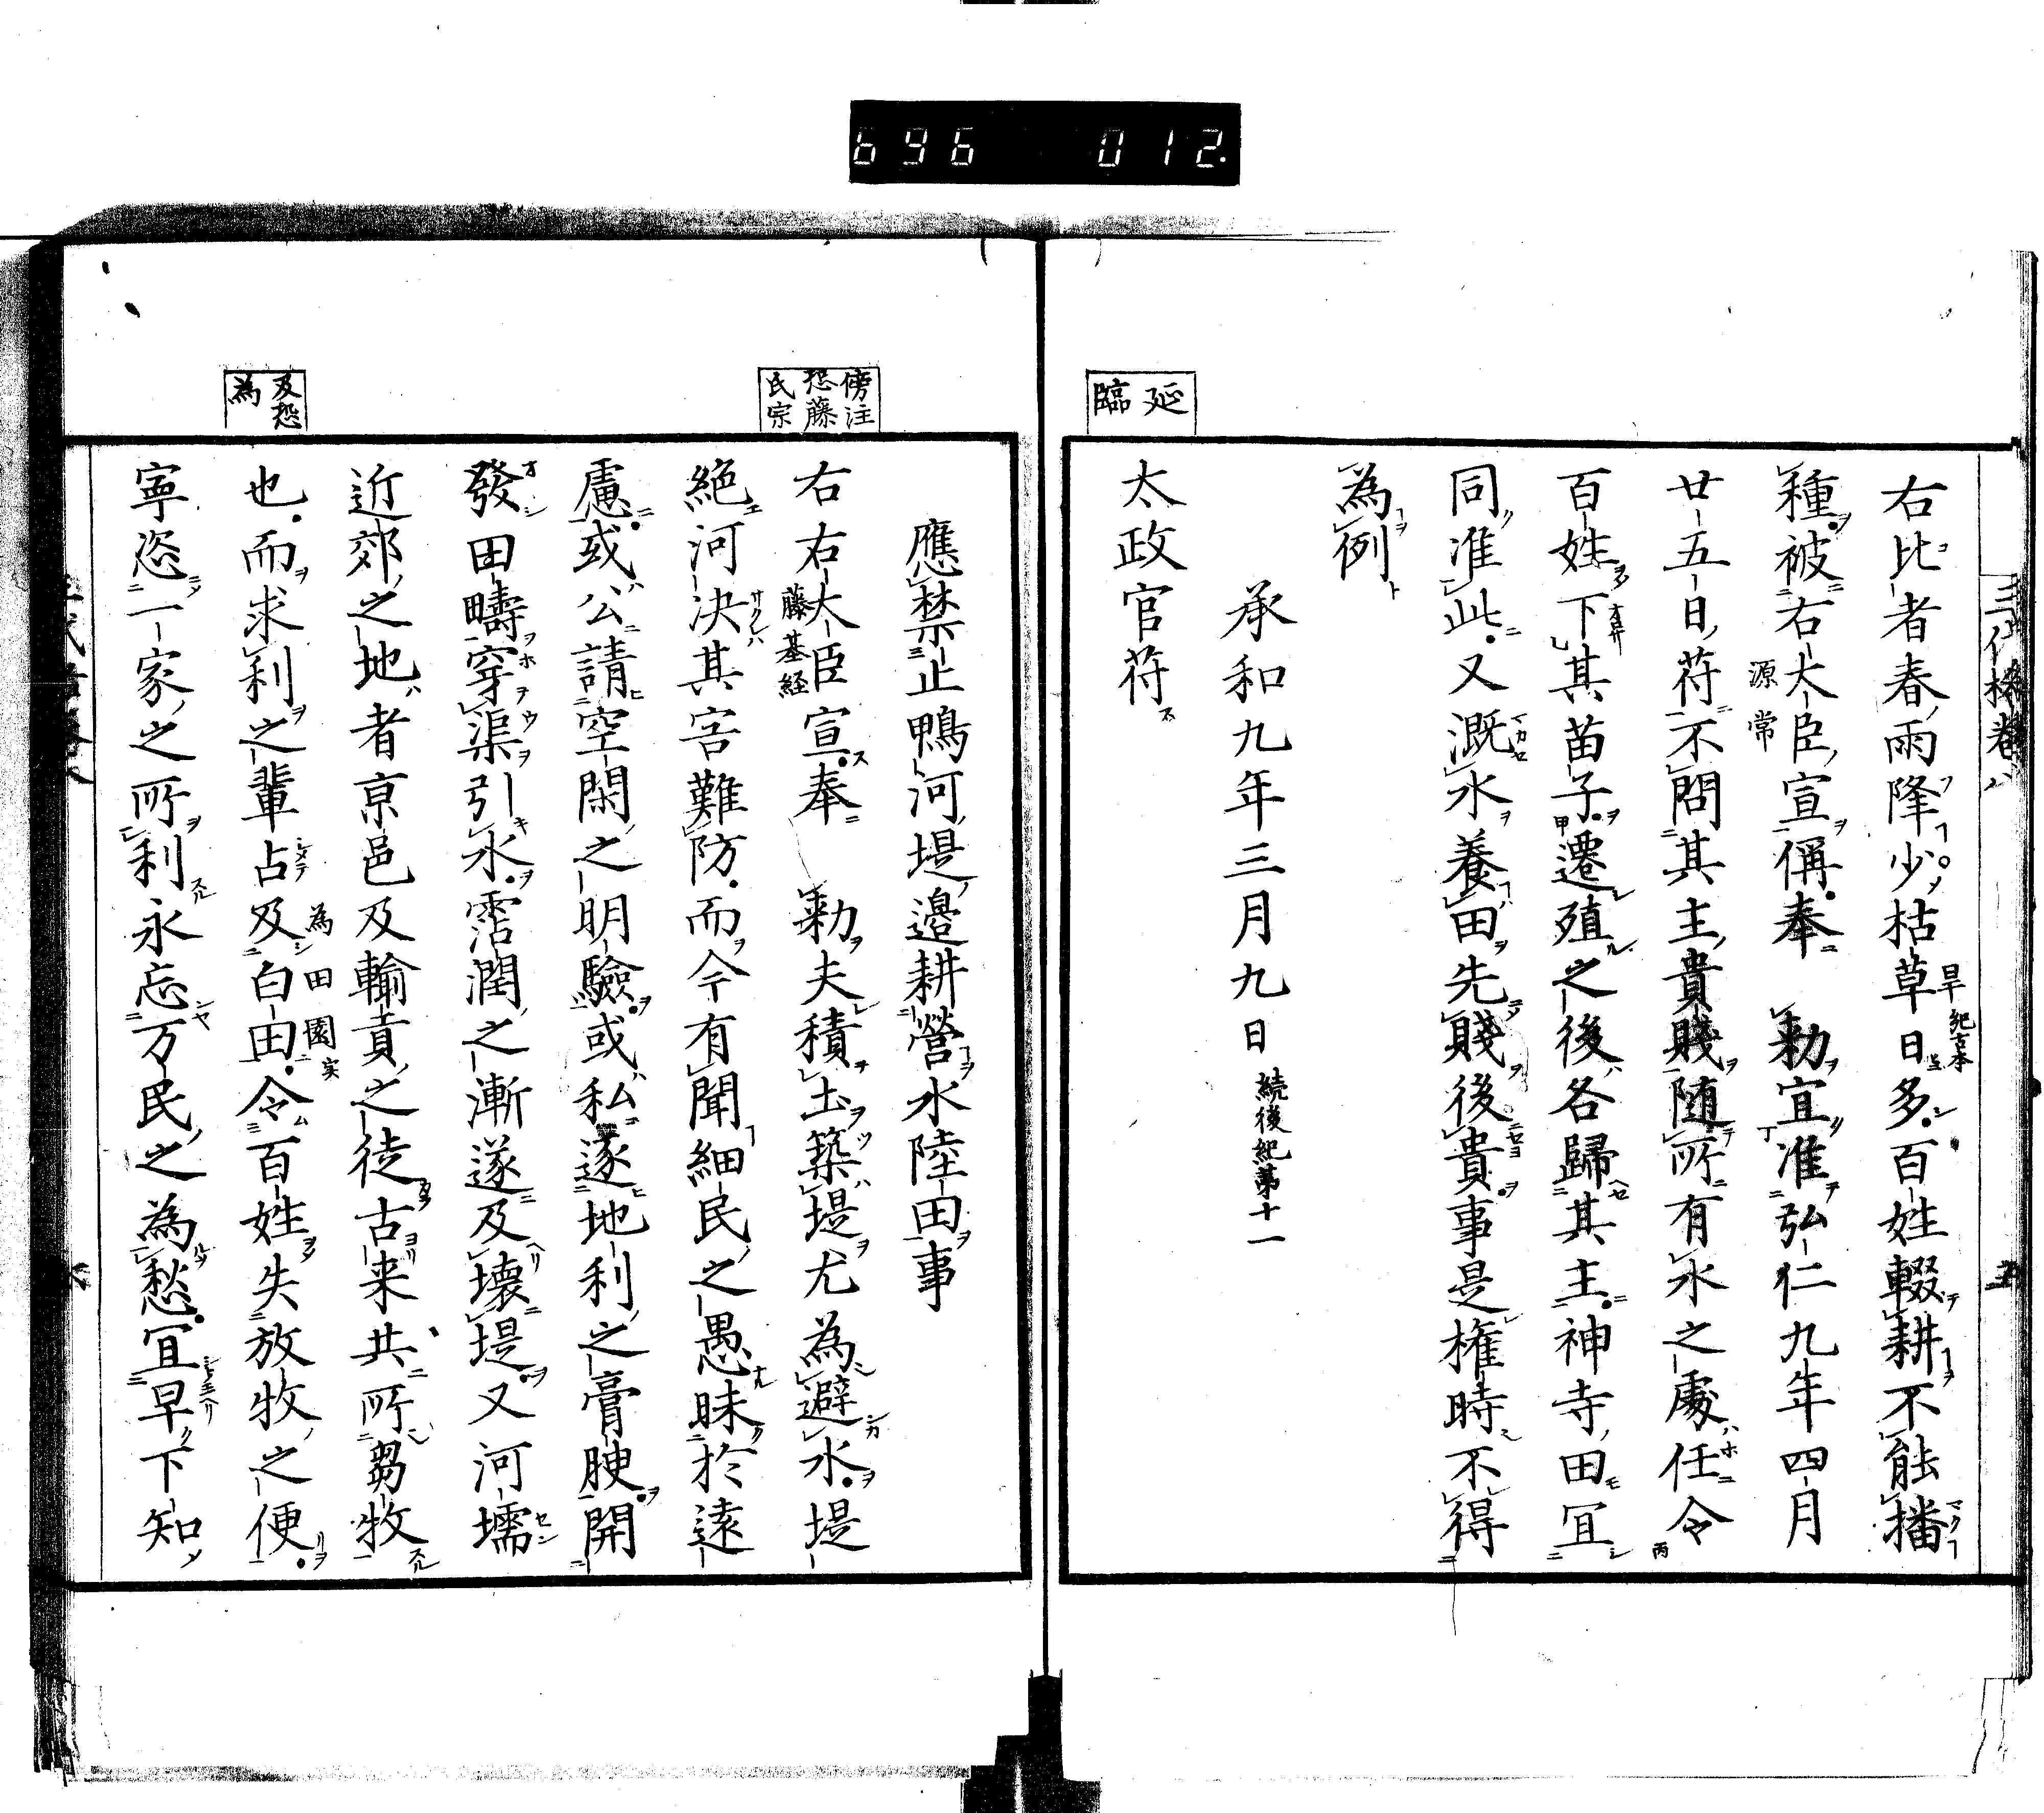 696 012
延
臨
右比者春雨降少枯草日多百姓輟耕不能播
旱 紀古本
種被右大臣宣偁奉 勅宜准弘仁九年四月
源常
廿五日符不問其主貴賤随所有水之處任令
百姓下其苗子遷殖之後各歸其主神寺田冝
同准此又漑水養田先賤後貴事是権時不得
為例
承和九年三月九日 続後紀第十一
太政官符
傍注
恐藤
氏宗
及恐
為
應禁止鴨河堤邊耕營水陸田事
右右大臣宣奉 勅夫積土築堤尤為避水堤
藤基経
絶河決其害難防而今有聞細民之愚昧於遠
慮或公請空閑之明驗或私逐地利之膏腴開
發田疇穿渠引水霑潤之漸遂及壊堤又河壖
近郊之地者京邑及輸貢之徒古来共所芻牧
也而求利之輩占及白田令百姓失放牧之便
為 田園
寧恣一家之所利永忘万民之為愁冝早下知